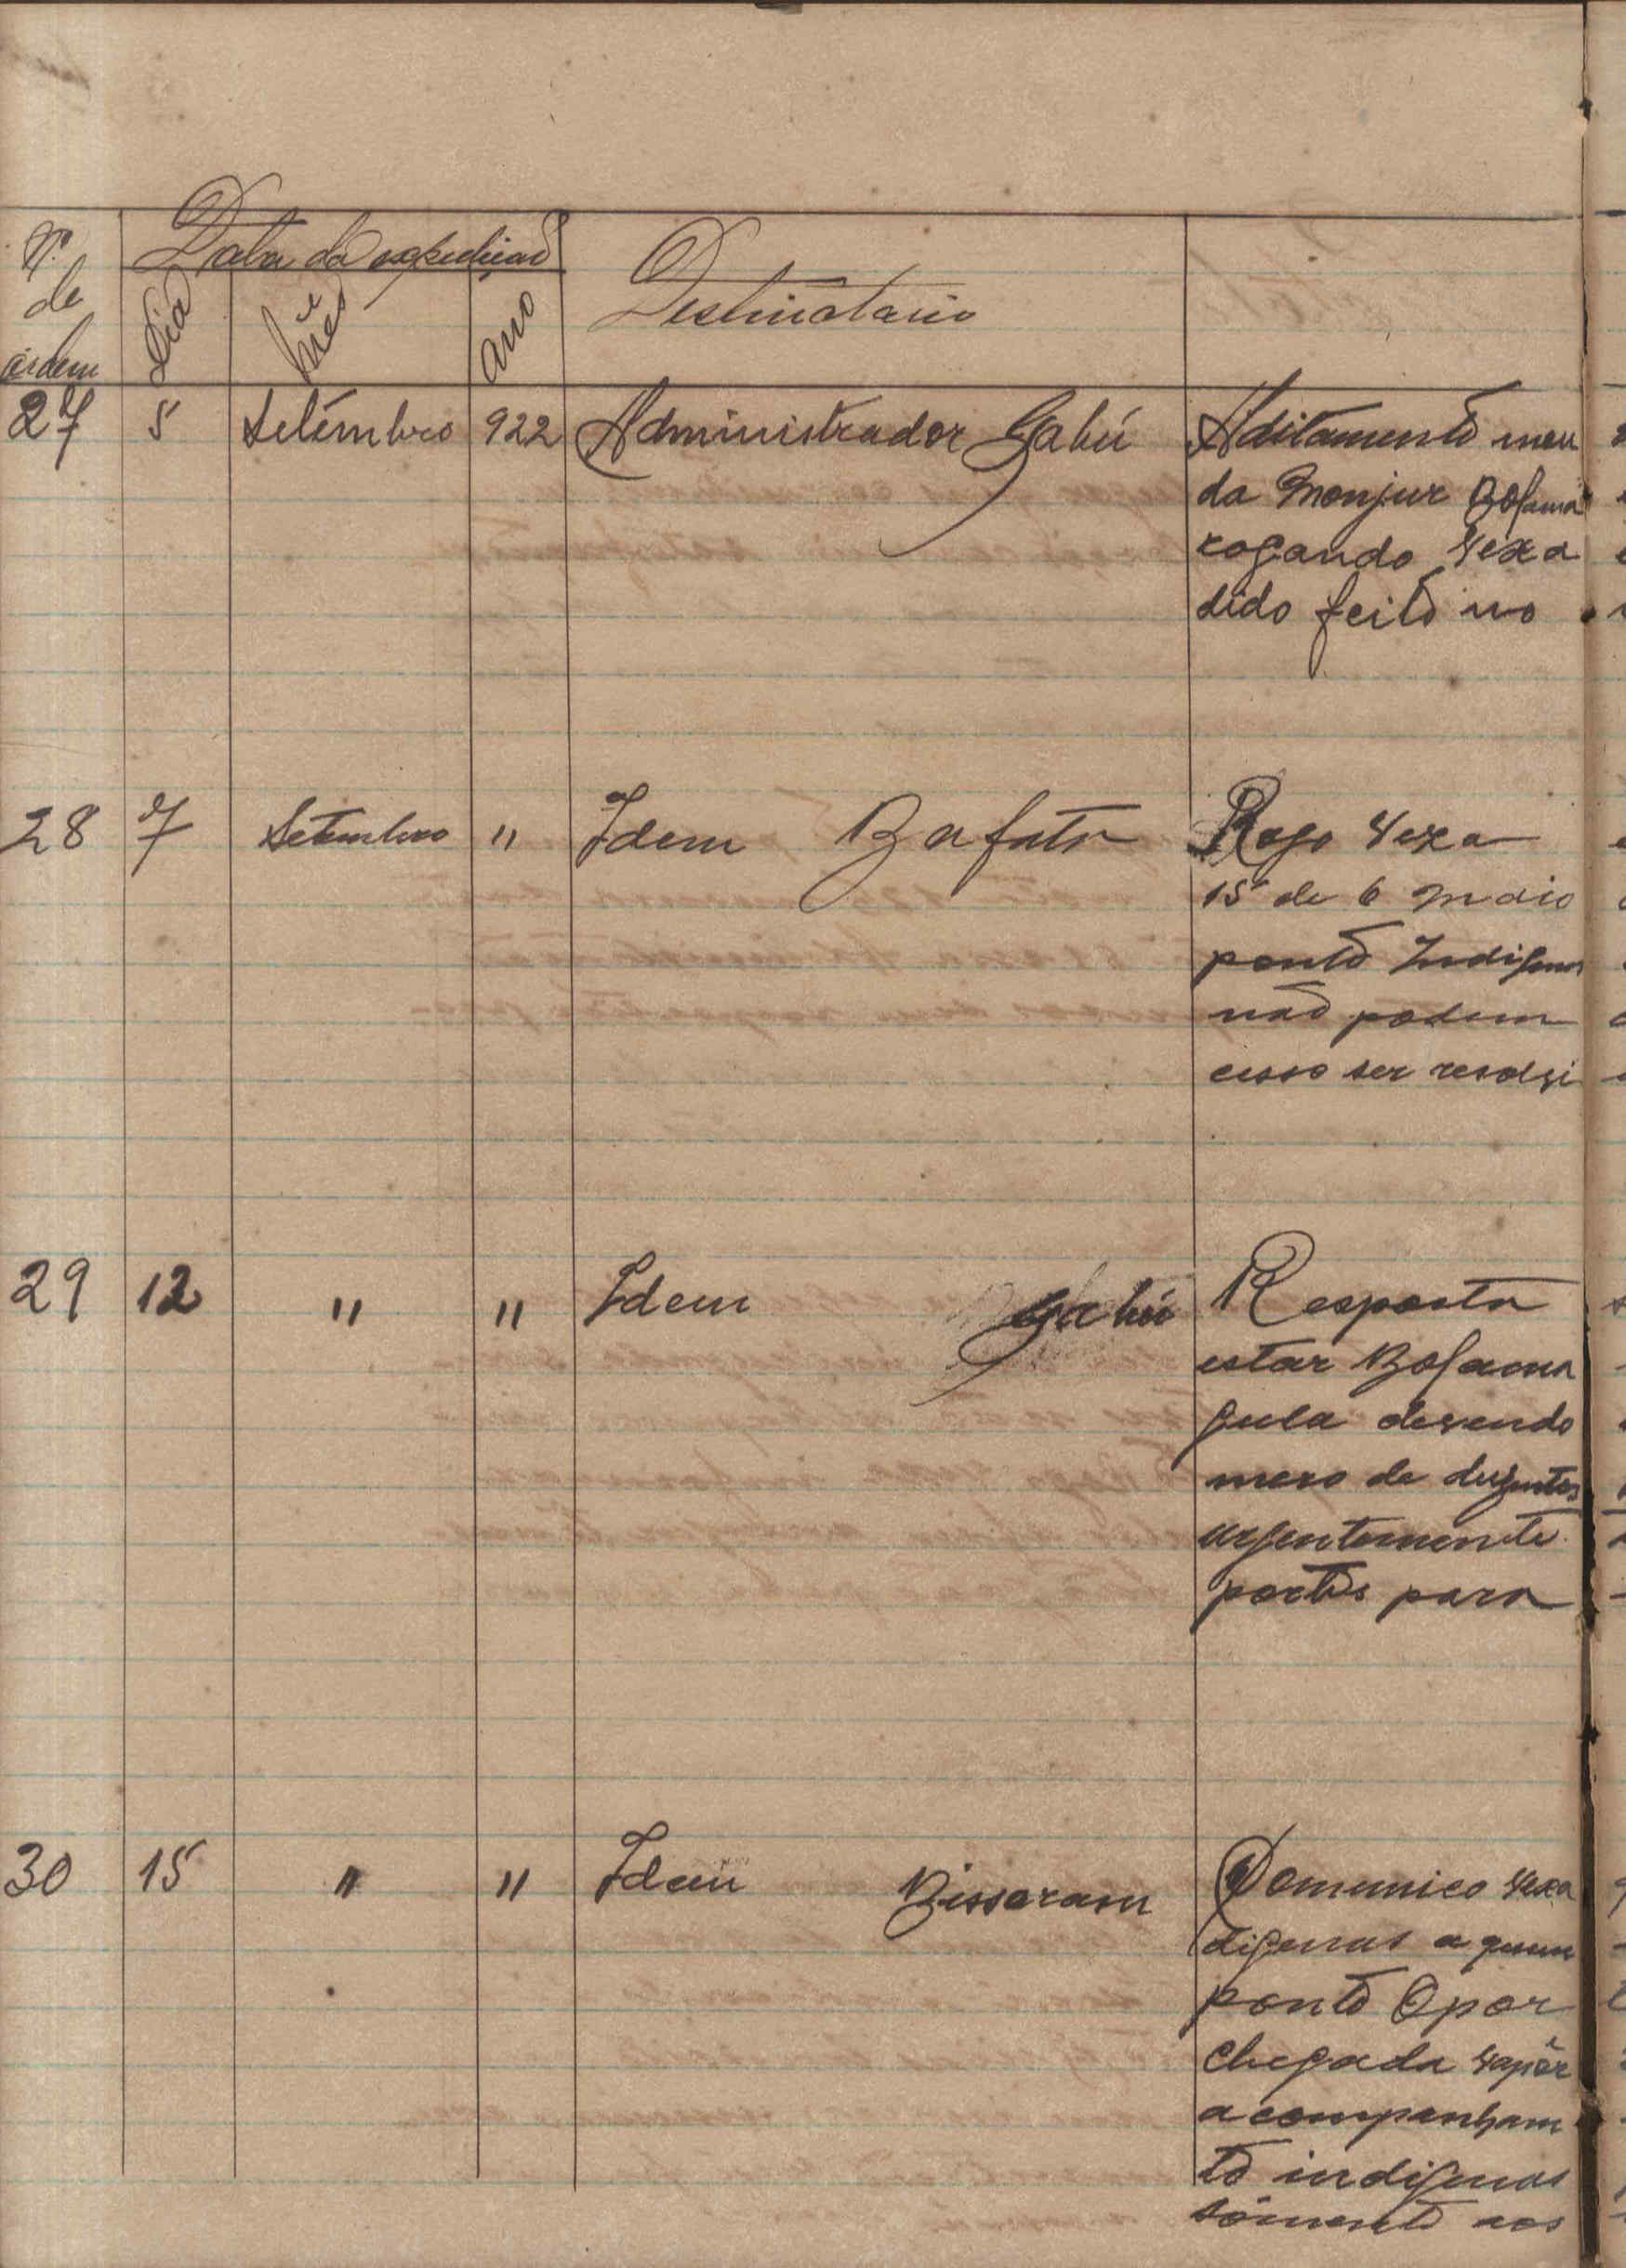 Nº de ordem
Data da expedição
Dia Mês Ano
Destinatario
27 5 Setembro 922 Administrador Gabú Aditamento meu
da Monjur Bolama
rogando Vexa
dido feito no
28 7 Setembro " Idem Bafatá Rogo Vexa
15 de 6 Maio
ponto Indigenas
não podem
cesso ser resolvi
29 12 " " Idem Gabú Resposta
estar Bolama
gula devendo
mero de duzentos
urgentemente
portes para
30 15 " " Idem Bissoram Comunico Vexa
digenas a quem
ponto Opor
chegada vapôr
acompanham
to indigenas
sómente aos